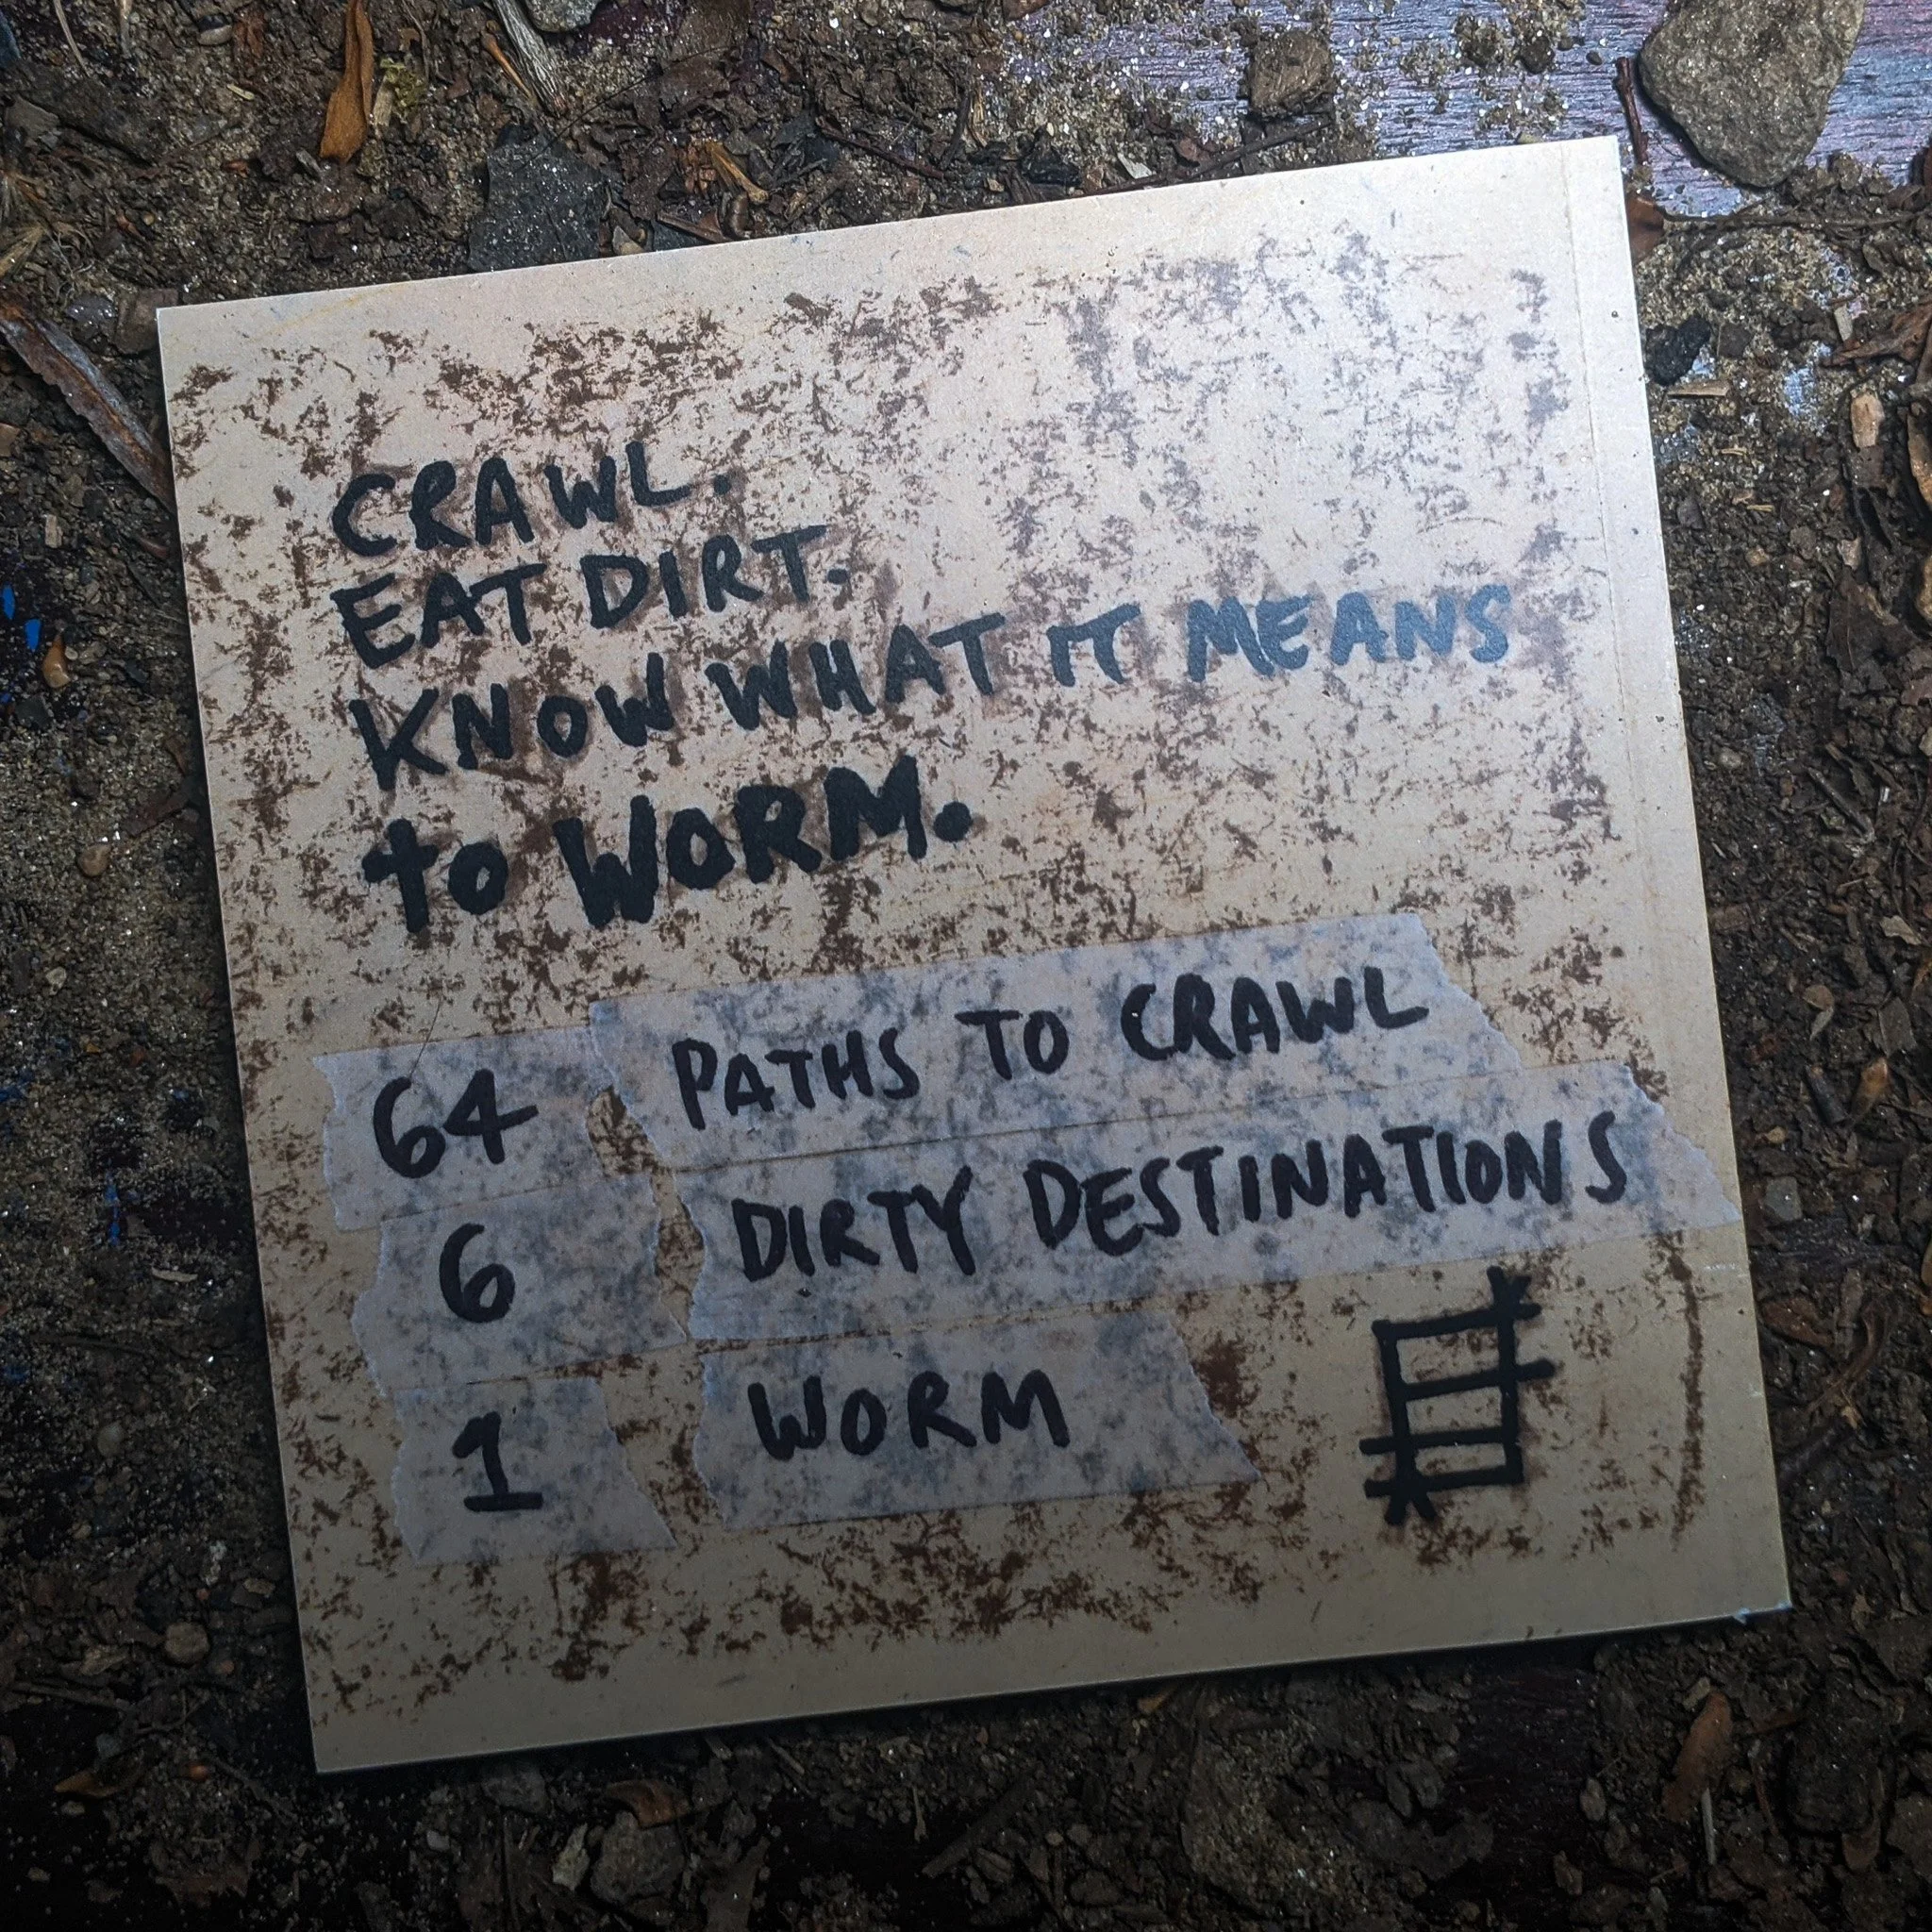 CRAWL.
EAT DIRT.
KNOW WHAT IT MEANS
to WORM.
64 PATHS TO CRAWL
6 DIRTY DESTINATIONS
1 WORM